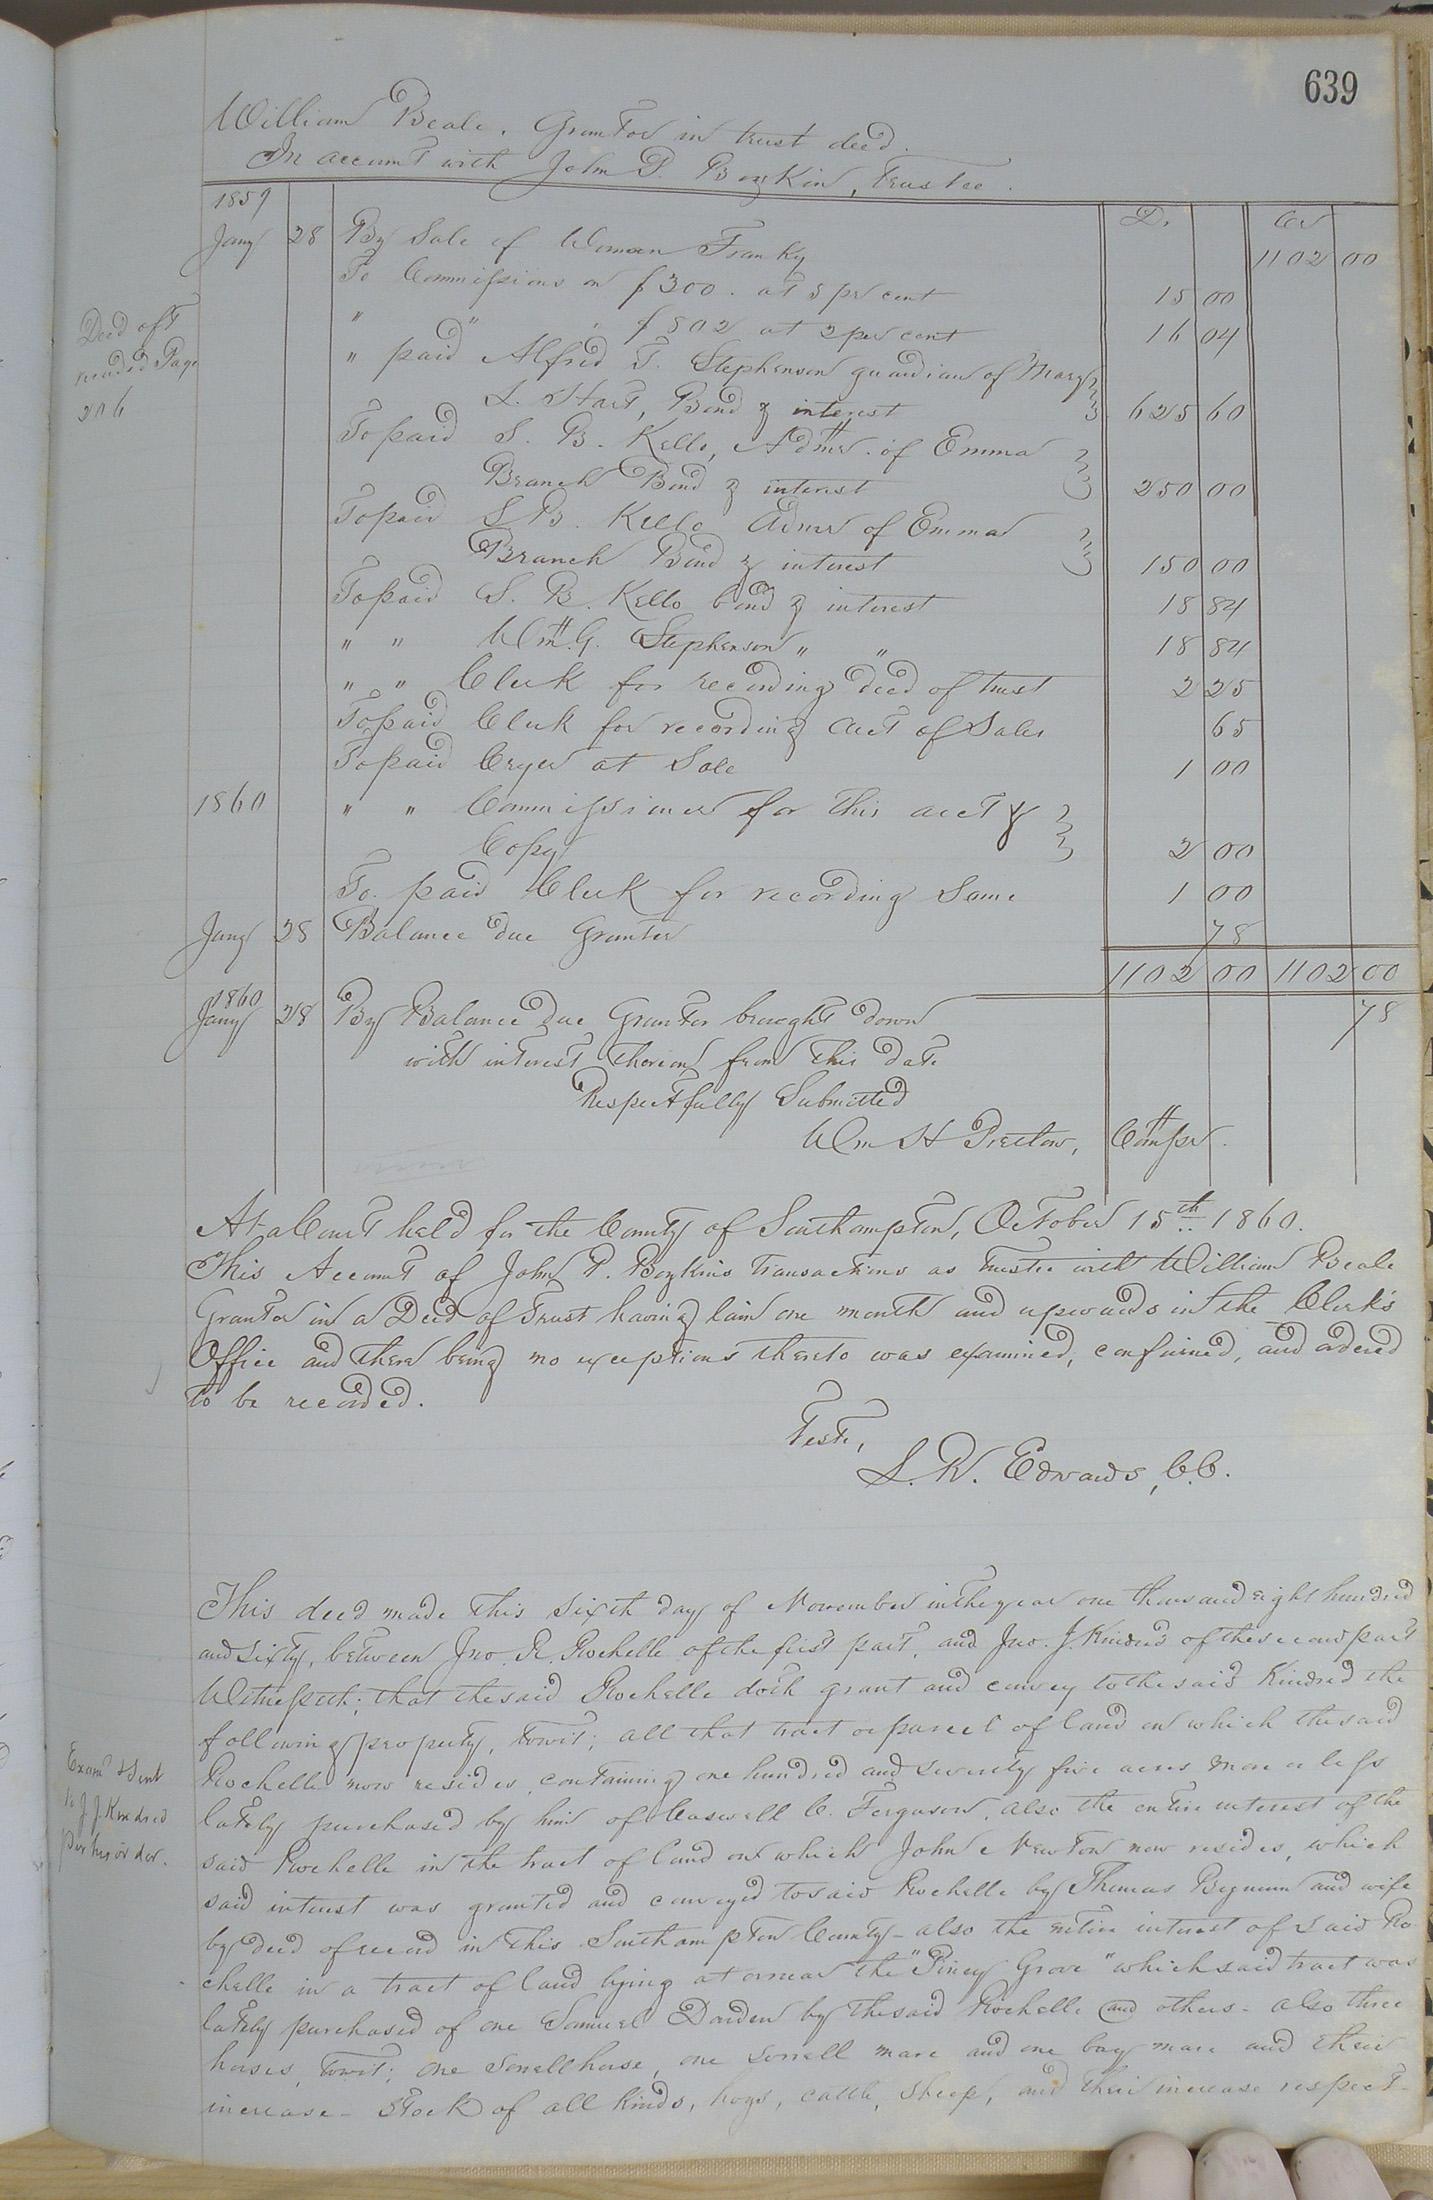 639
William Beale, Grantor in trust deed.
In account with John D. Boykin, Trustee.
1859
Dr. Cr
Jany 28 By Sale of Woman Franky 1102 00
To Commissions on $300. at 5 per cent 15 00
" " " $802 at 2 per cent 16 04
" paid Alfred T. Stephenson guardian of Mary
L. Hart, Bond & interest 625 60
To paid S. B. Kello, Admr. of Emma
Branch Bond & interest 250 00
To paid S B. Kello Admr of Emma
Branch Bond & interest 150 00
To paid S. B. Kello bond & interest 18 84
" " Wm. G. Stephenson " " 18 84
" " Clerk for recording deed of trust 2 25
To paid Clerk for recording acct of Sales 65
To paid Cryer at Sale 1 00
1860 " " Commissioner for this acct &
Copy 2 00
To paid Clerk for recording Same 1 00
Jany 28 Balance due Grantor 78
1102 00 1102 00
1860
Jany 28 By Balance due Grantor brought down 78
with interest thereon from this date
Respectfully Submitted
Wm H Pretlow, Comssr.
Deed of T
recorded Page
206
At a Court held for the County of Southampton, October 15th 1860.
This Account of John D. Boykins transactions as trustee with William Beale
Grantor in a Deed of Trust having lain one month and upwards in the Clerk's
Office and there being no exceptions thereto was examined, confirmed, and ordered
to be recorded.
Teste,
L. R. Edwards, C.C.
This deed made this sixth day of November in the year one thousand eight hundred
and sixty, between Jno. R. Rochelle of the first part, and Jno. J. Kindred of the second part
Witnesseth; that the said Rochelle doth grant and convey to the said Kindred the
following property, towit; all that tract or parcel of land on which the said
Rochelle now resides, containing one hundred and seventy five acres more or less
lately purchased by him of Caswell C. Ferguson, also the entire interest of the
said Rochelle in the tract of land on which John Newton now resides, which
said interest was granted and conveyed to said Rochelle by Thomas Bynum and wife
by deed of record in this Southampton County - also the entire interest of said Ro-
chelle in a tract of land lying at or near the "Piney Grove" which said tract was
lately purchased of one Samuel Darden by the said Rochelle and others - also three
horses, towit; one Sorrell horse, one sorrell mare and one bay mare and their
increase - Stock of all kinds, hogs, cattle, sheep, and their increase respect-
Examd & Sent
to J. J. Kindred
per his order.